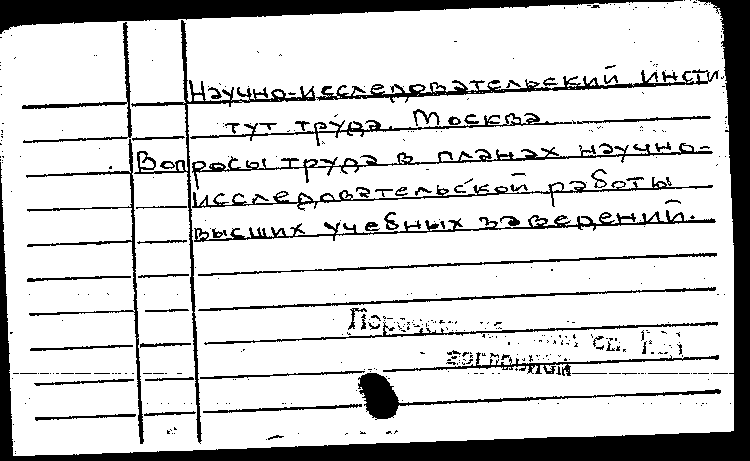 Научно-исследовательский инсти
тут труда. Москва.
Вопросы труда в планах научно-
исследовательской работы
высших учебных заведений.
см. на
заглавном